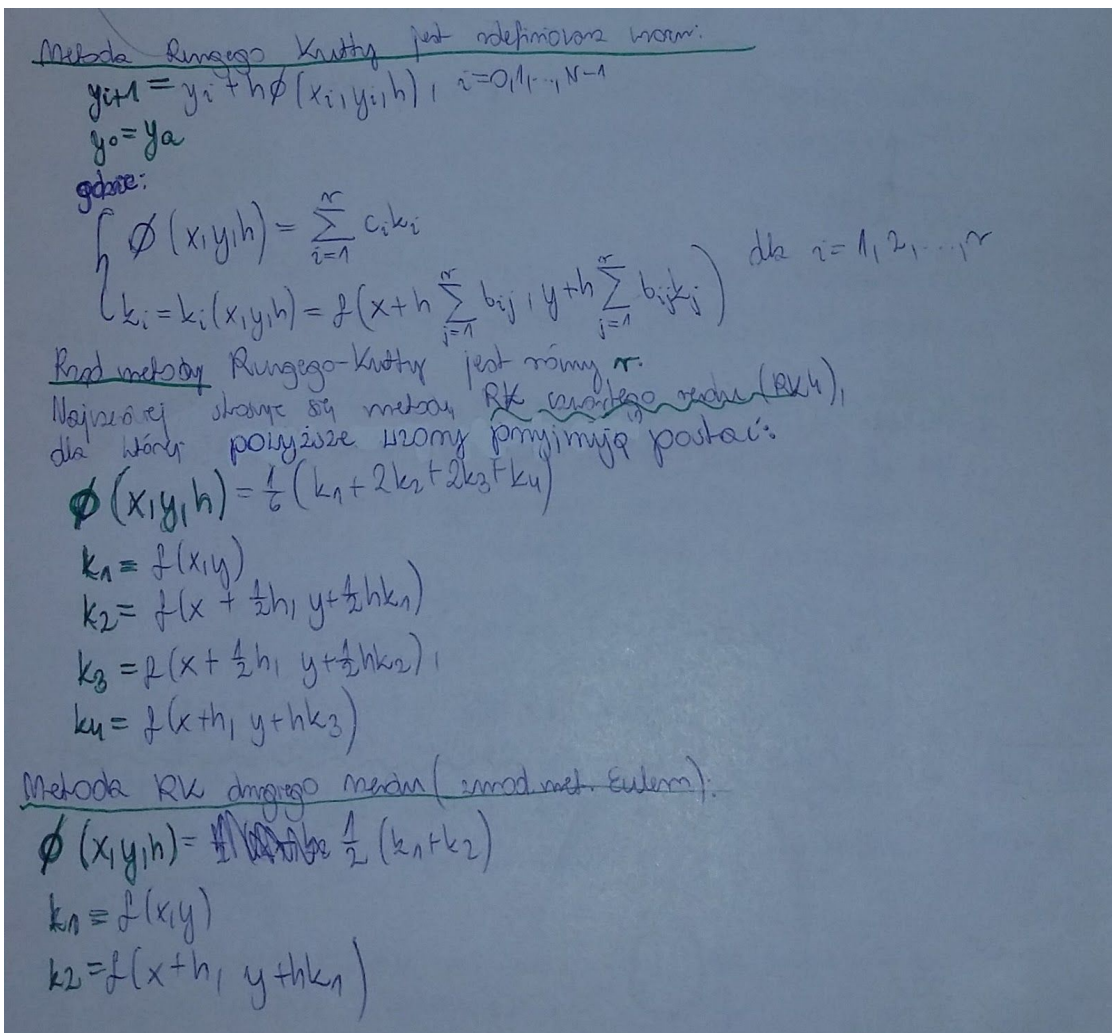 Metoda Rungego Kutty jest zdefiniowana wzorem:
yi+1 = yi + hø(xi, yi, h), i=0,1,..., N-1
y0 = ya
gdzie:
ø(x,y,h) = Σ_{i=1}^{r} ciki
ki = ki(x,y,h) = f(x+h Σ_{j=1}^{r} bij, y+h Σ_{j=1}^{r} bijkj) dla i=1,2,...,r
Rząd metody Rungego-Kutty jest równy r.
Najczęściej stosuje się metodę RK czwartego rzędu (RK4),
dla której powyższe wzory przyjmują postać:
ø(x,y,h) = 1/6 (k1+2k2+2k3+k4)
k1 = f(x,y)
k2 = f(x + 1/2h, y+1/2hk1)
k3 = f(x + 1/2h, y+1/2hk2),
k4 = f(x+h, y+hk3)
Metoda RK drugiego rzędu (zmod. met. Eulera):
ø(x,y,h) = 1/2 (k1+k2)
k1 = f(x,y)
k2 = f(x+h, y+hk1)